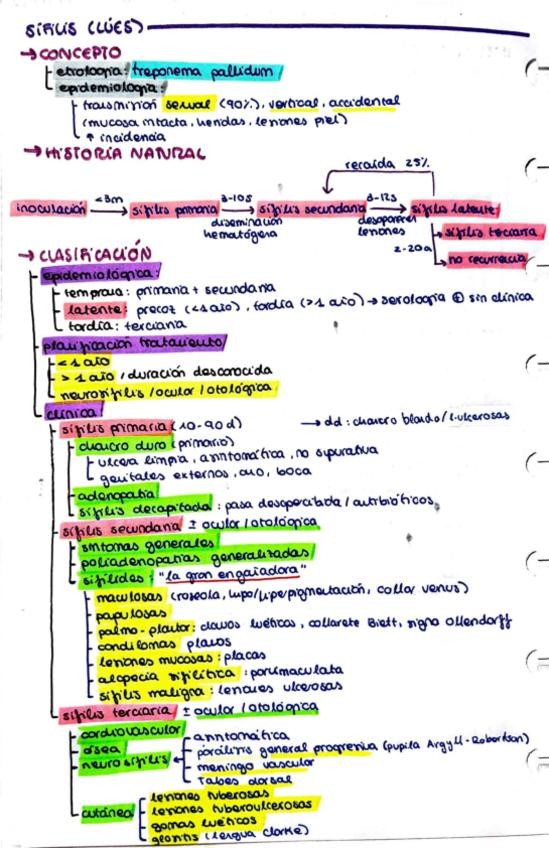 SÍFILIS (LÚES)
→ CONCEPTO
etiología: treponema pallidum
epidemiología:
transmisión sexual (90%), vertical, accidental
(mucosa intacta, heridas, lesiones piel)
↑ incidencia
→ HISTORIA NATURAL
recaída 25%
inoculación <3m → sífilis primaria 3-10s → sífilis secundaria 3-12s → sífilis latente
diseminación hematógena
desaparecen lesiones
sífilis terciaria
2-20a
no recurrencia
→ CLASIFICACIÓN
epidemiológica:
temprana: primaria + secundaria
latente: precoz (<1 año), tardía (>1 año) → serología ⊕ sin clínica
tardía: terciaria
planificación tratamiento
<1 año
>1 año / duración desconocida
neurosífilis / ocular / otológica
clínica:
sífilis primaria (10-90d) → dd: chancro blando / l. ulcerosas
chancro duro (primario)
úlcera limpia, asintomática, no supurativa
genitales externos, ano, boca
adenopatía
sífilis decapitada: pasa desapercibida / antibióticos
sífilis secundaria ± ocular / otológica
síntomas generales
poliadenopatías generalizadas
sifílides: "la gran engañadora"
maculosas (roseola, hipo/hiperpigmentación, collar venus)
papulosas
palmo-plantar: clavos luéticos, collarete Biett, signo Ollendorff
condilomas planos
lesiones mucosas: placas
alopecia sifilítica: parimaculata
sífilis maligna: lesiones ulcerosas
sífilis terciaria ± ocular / otológica
cardiovascular
ósea
neurosífilis
asintomática
parálisis general progresiva (pupila Argyll-Robertson)
meningo vascular
Tabes dorsal
cutánea
lesiones tuberosas
lesiones tuberoulcerosas
gomas luéticos
glositis (lengua Clarke)